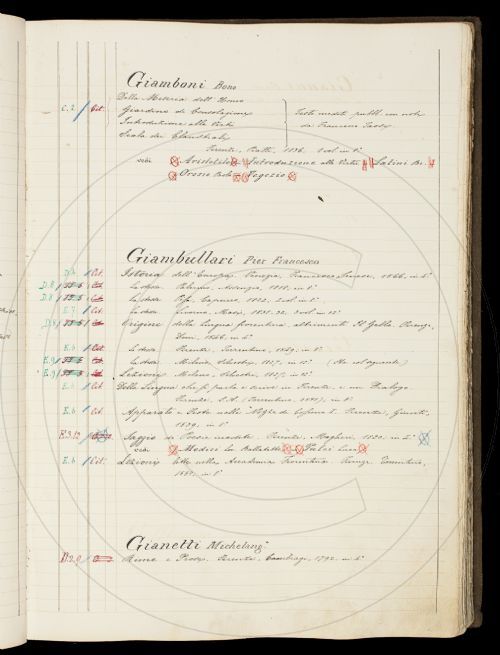 Giamboni Bono
Della Miseria dell' Uomo
C. 2. Cit. Giardino di Consolazione Testi inediti pubbl. con note
Introduzione alle Virtù da Francesco Tassi
Scala dei Claustrali
Firenze, Piatti, 1836. 2 vol. in 8°
vedi Aristotile Introduzione alle Virtù Latini Br.
Orosio Paolo Vegezio
Giambullari Pier Francesco
Cit. Istoria dell' Europa. Venezia, Francesco Senese, 1566. in 4°
D.8 Cit. la stessa Palermo, 1818. in 8°
D.8 Cit. la stessa Pisa, Capurro, 1822, 2 vol. in
E.7 Cit. la stessa Livorno, Masi, 1831-32. 2 vol. in 12°
Cit. Origine della lingua fiorentina altrimenti Il Gello. Firenze,
Doni, 1546. in 4°
E.6 Cit. la stessa Firenze, Torrentino, 1549. in 8°
E.9 la stessa Milano, Silvestri, 1827. in
E.9 Lezioni Milano, Silvestri, 1827. in
E.6 Cit. Della Lingua che si parla e scrive in Firenze, e un Dialogo.
Firenze, S.A. (Torrentino, 1551), in 8°
E.6 Cit. Apparato e Feste nelle Nozze di Cosimo I. Firenze, Giunti,
1539. in 8°
E.3.12 Saggio di Poesie inedite. Firenze, Magheri, 1820. in
vedi Medici Lor. Ballatette Pulci Luca
E.6 Cit. Lezioni lette nella Accademia Fiorentina. Firenze, Torrentino,
1551. in 8°
Gianetti Michelang°
D.2.9 Rime e Prose. Firenze, Cambiagi, 1792. in